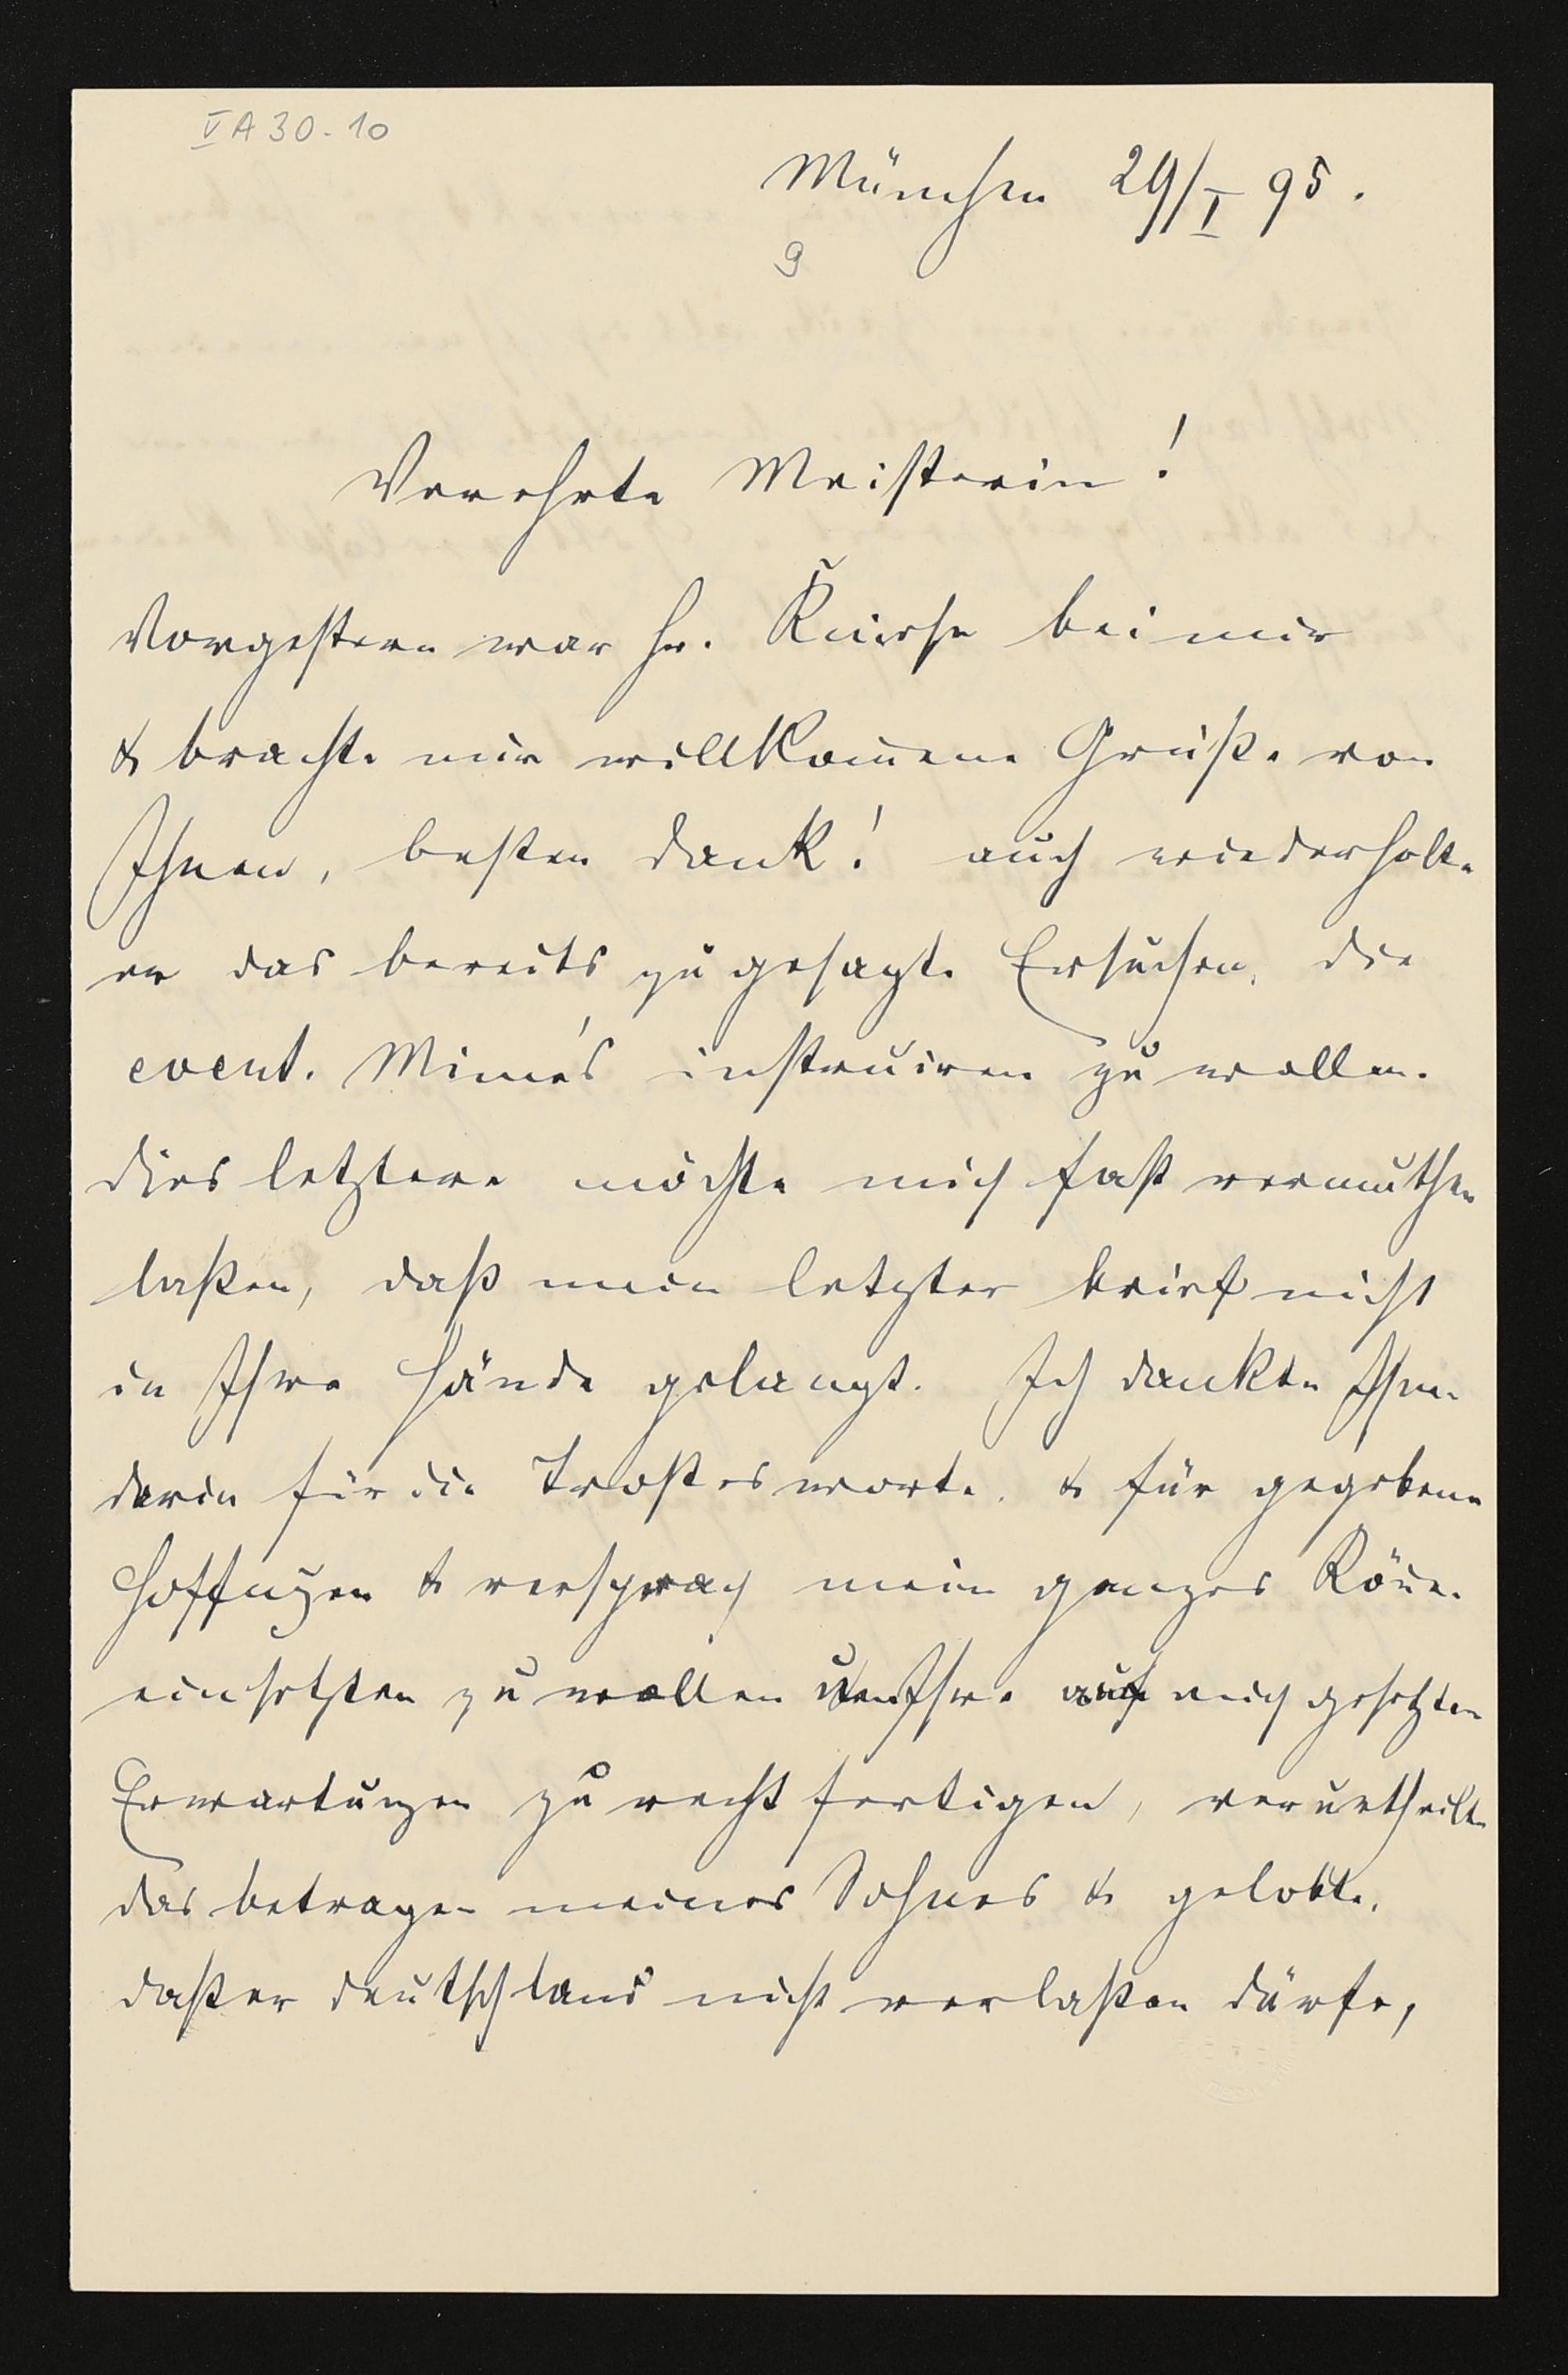 V A 30-10
München 29/I 95.
9
Verehrte Meisterin!
Vorgestern war Hr. Kniese bei mir
& brachte mir willkom̄ene Grüße von
Ihnen, besten Dank! auch wiederholte
er das bereits zugesagte Ersuchen, die
event. Mime's instruiren zu wollen.
Dies letztere möchte mich fast vermuthen
laßen, daß mein letzter Brief nicht
in Ihre Hände gelangt. Ich dankte Ihnen
darin für die Trostesworte, & für gegebene
Hoffnungen & versprach mein ganzes Kön̄en
einsetzten zu wollen um Ihre auf mich gesetzten
Erwartungen zu rechtfertigen, verurtheilte
das Betragen meines Sohnes & gelobte,
daß er Deutschland nicht verlaßen dürfe,